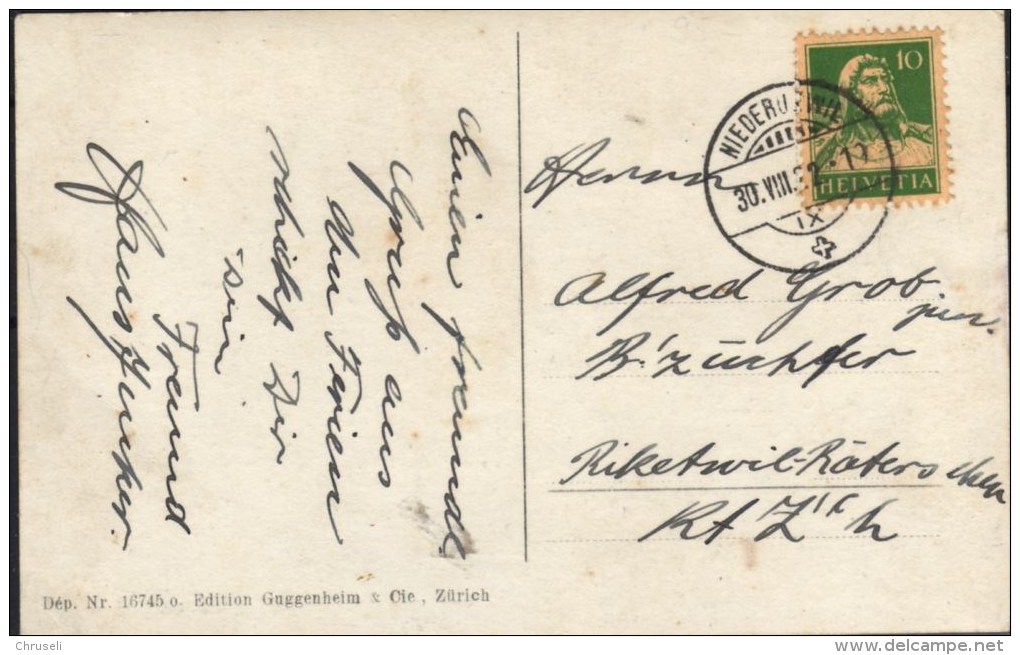 Einen freundl.
Gruß aus
den Ferien
schickt Dir
Dein
Freund
Hans Jucker.
Herrn
Alfred Grob
jun.
B.'züchter
Riketwil-Räterschen
Kt Z'ch
10
HELVETIA
NIEDERUZWIL
30.VIII.
IX
Dép. Nr. 16745 o. Edition Guggenheim & Cie, Zürich
Chruseli
delcampe.net